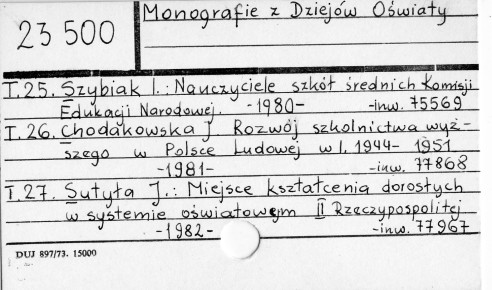 23 500
Monografie z Dziejów Oświaty
T.25. Szybiak I.: Nauczyciele szkół średnich Komisji
Edukacji Narodowej. -1980- -inw. 75569
T.26. Chodakowska J. Rozwój szkolnictwa wyż-
szego w Polsce Ludowej w l. 1944- 1951
-1981- -inw. 77868
T.27. Sutyła J.: Miejsce kształcenia dorosłych
w systemie oświatowym II Rzeczypospolitej
-1982- -inw. 77967
DUJ 897/73. 15000